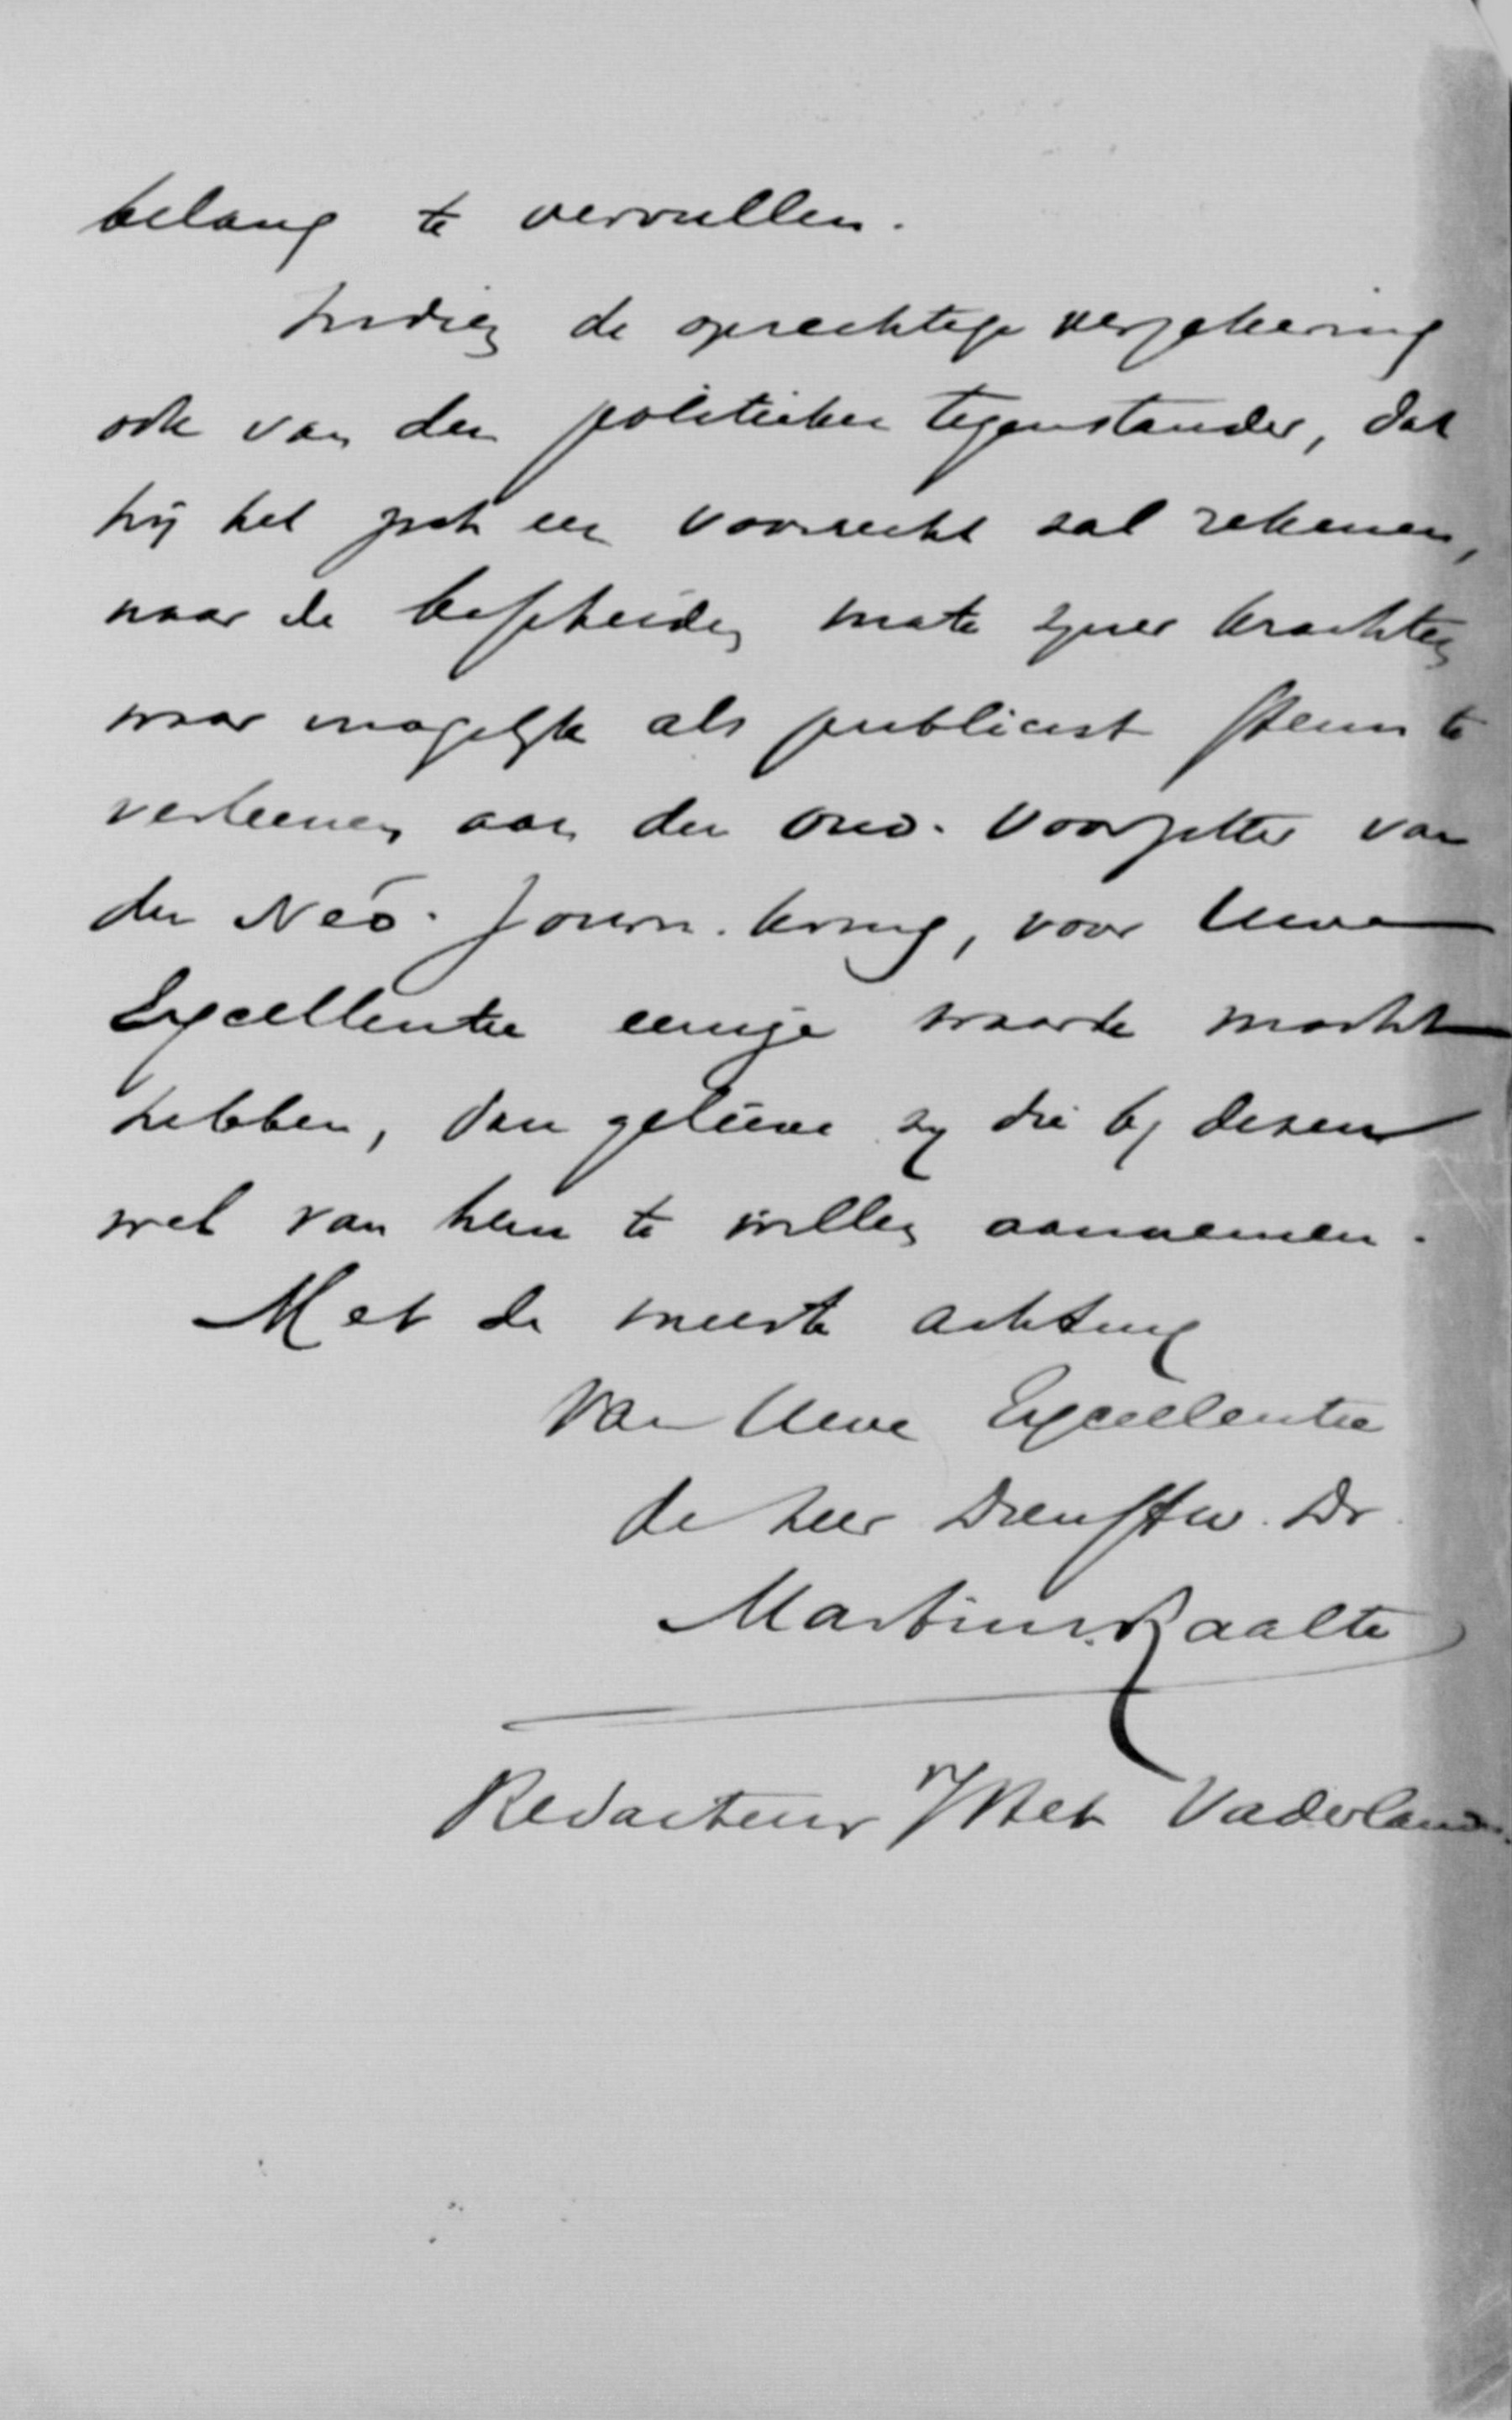 belang te vervullen.
Indien de oprechtige verzekering
ook van den politieken tegenstander, dat
hij het zich een voorrecht zal rekenen,
naar de bescheiden mate zijner krachten
waar mogelijk als publicist steun te
verleenen aan den oud. Voorzitter van
den Ned. Journ. kring, voor Uwe
Excellentie eenige waarde mocht
hebben, dan gelieve zij die bij dezen
wel van hem te willen aannemen.
Met de meeste achting
Van Uwe Excellentie
de zeer Dienstw. Dr
Martinus Raalte
Redacteur v/ Het Vaderland.